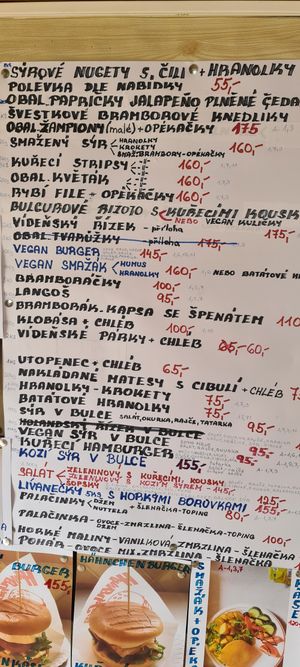 SÝROVÉ NUGETY S ČILI + HRANOLKY
POLÉVKA DLE NABÍDKY 55,-
OBAL. PAPRIČKY JALAPEŇO PLNĚNÉ ČEDA
ŠVESTKOVÉ BRAMBOROVÉ KNEDLÍKY
OBAL. ŽAMPIONY (malé) + OPÉKAČKY 175
SMAŽENÝ SÝR HRANOLKY 160,-
KROKETY
BRAMBORY-OPÉKAČKY
KUŘECÍ STRIPSY 160,-
OBAL. KVĚTÁK 160,-
RYBÍ FILE + OPÉKAČKY 160,-
BULGUROVÉ RIZOTO S KUŘECÍMI KOUSK
NEBO VEGAN KULIČKY
VÍDEŇSKÝ ŘÍZEK - příloha 175,-
OBAL. TVARŮŽKY - příloha 175,-
VEGAN BURGER 145,-
VEGAN SMAŽÁK HUMUS
HRANOLKY 160,- NEBO BATÁTOVÉ H
BRAMBORÁČKY 100,-
LANGOŠ 95,-
BRAMBORÁK. KAPSA SE ŠPENÁTEM 110
KLOBÁSA + CHLÉB 100,-
VÍDEŇSKÉ PÁRKY + CHLÉB 60,-
UTOPENEC + CHLÉB 65,-
NAKLÁDANÉ MATESY S CIBULÍ + CHLÉB 7
HRANOLKY - KROKETY 75,-
BATÁTOVÉ HRANOLKY 75,-
SÝR V BULCE SALÁT, OKURKA, RAJČE, TATARKA 95,-
HOLANDSKÝ ŘÍZEK V BULCE
VEGAN SÝR V BULCE 95,-
KUŘECÍ HAMBURGER 95,-
KOZÍ SÝR V BULCE 155,-
SALÁT ZELENINOVÝ S KUŘECÍMI KOUSKY
ZELENINOVÝ S KOZÍM SÝREM - 145,-
ŠOPSKÝ
LÍVANEČKY 5KS S HORKÝMI BORŮVKAMI 125,-
PALAČINKY DŽEM + ŠLEHAČKA-TOPING 80,-
NUTTELA 155,-
PALAČINKA - OVOCE-ZMRZLINA-ŠLEHAČKA-TOPING 100,-
HORKÉ MALINY - VANILKOVÁ ZMRZLINA - ŠLEHAČKA
POHÁR - OVOCE MIX. ZMRZLINA - ŠLEHAČKA
BURGER 155,-
HÄHNCHENBURGER
SMAŽÁK + OPÉK
A-1,3,7